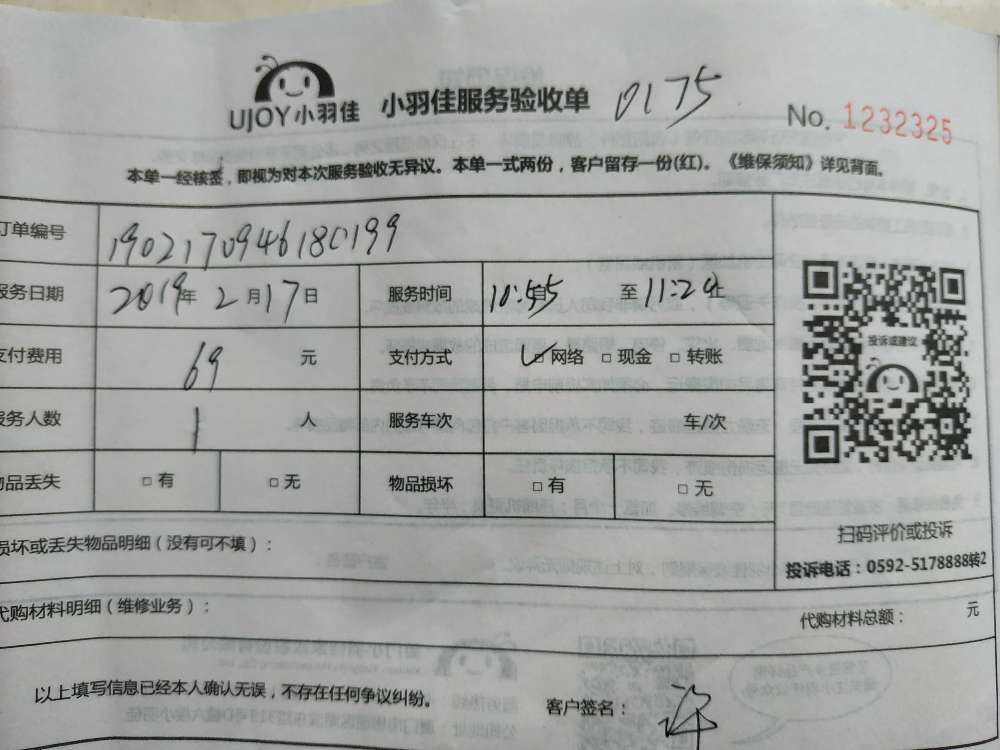 UJOY小羽佳 小羽佳服务验收单 0175 No. 1232325
本单一经核签，即视为对本次服务验收无异议。本单一式两份，客户留存一份(红)。《维保须知》详见背面。
订单编号 1902170946180199
服务日期 2019年 2月17日 服务时间 10:55 至 11:24止
支付费用 69 元 支付方式 ✓□网络 □现金 □转账
投诉或建议
服务人数 1 人 服务车次 车/次
物品丢失 □有 □无 物品损坏 □有 □无
扫码评价或投诉
损坏或丢失物品明细（没有可不填）：
投诉电话：0592-5178888转2
代购材料明细（维修业务）： 代购材料总额： 元
以上填写信息已经本人确认无误，不存在任何争议纠纷。 客户签名： 许